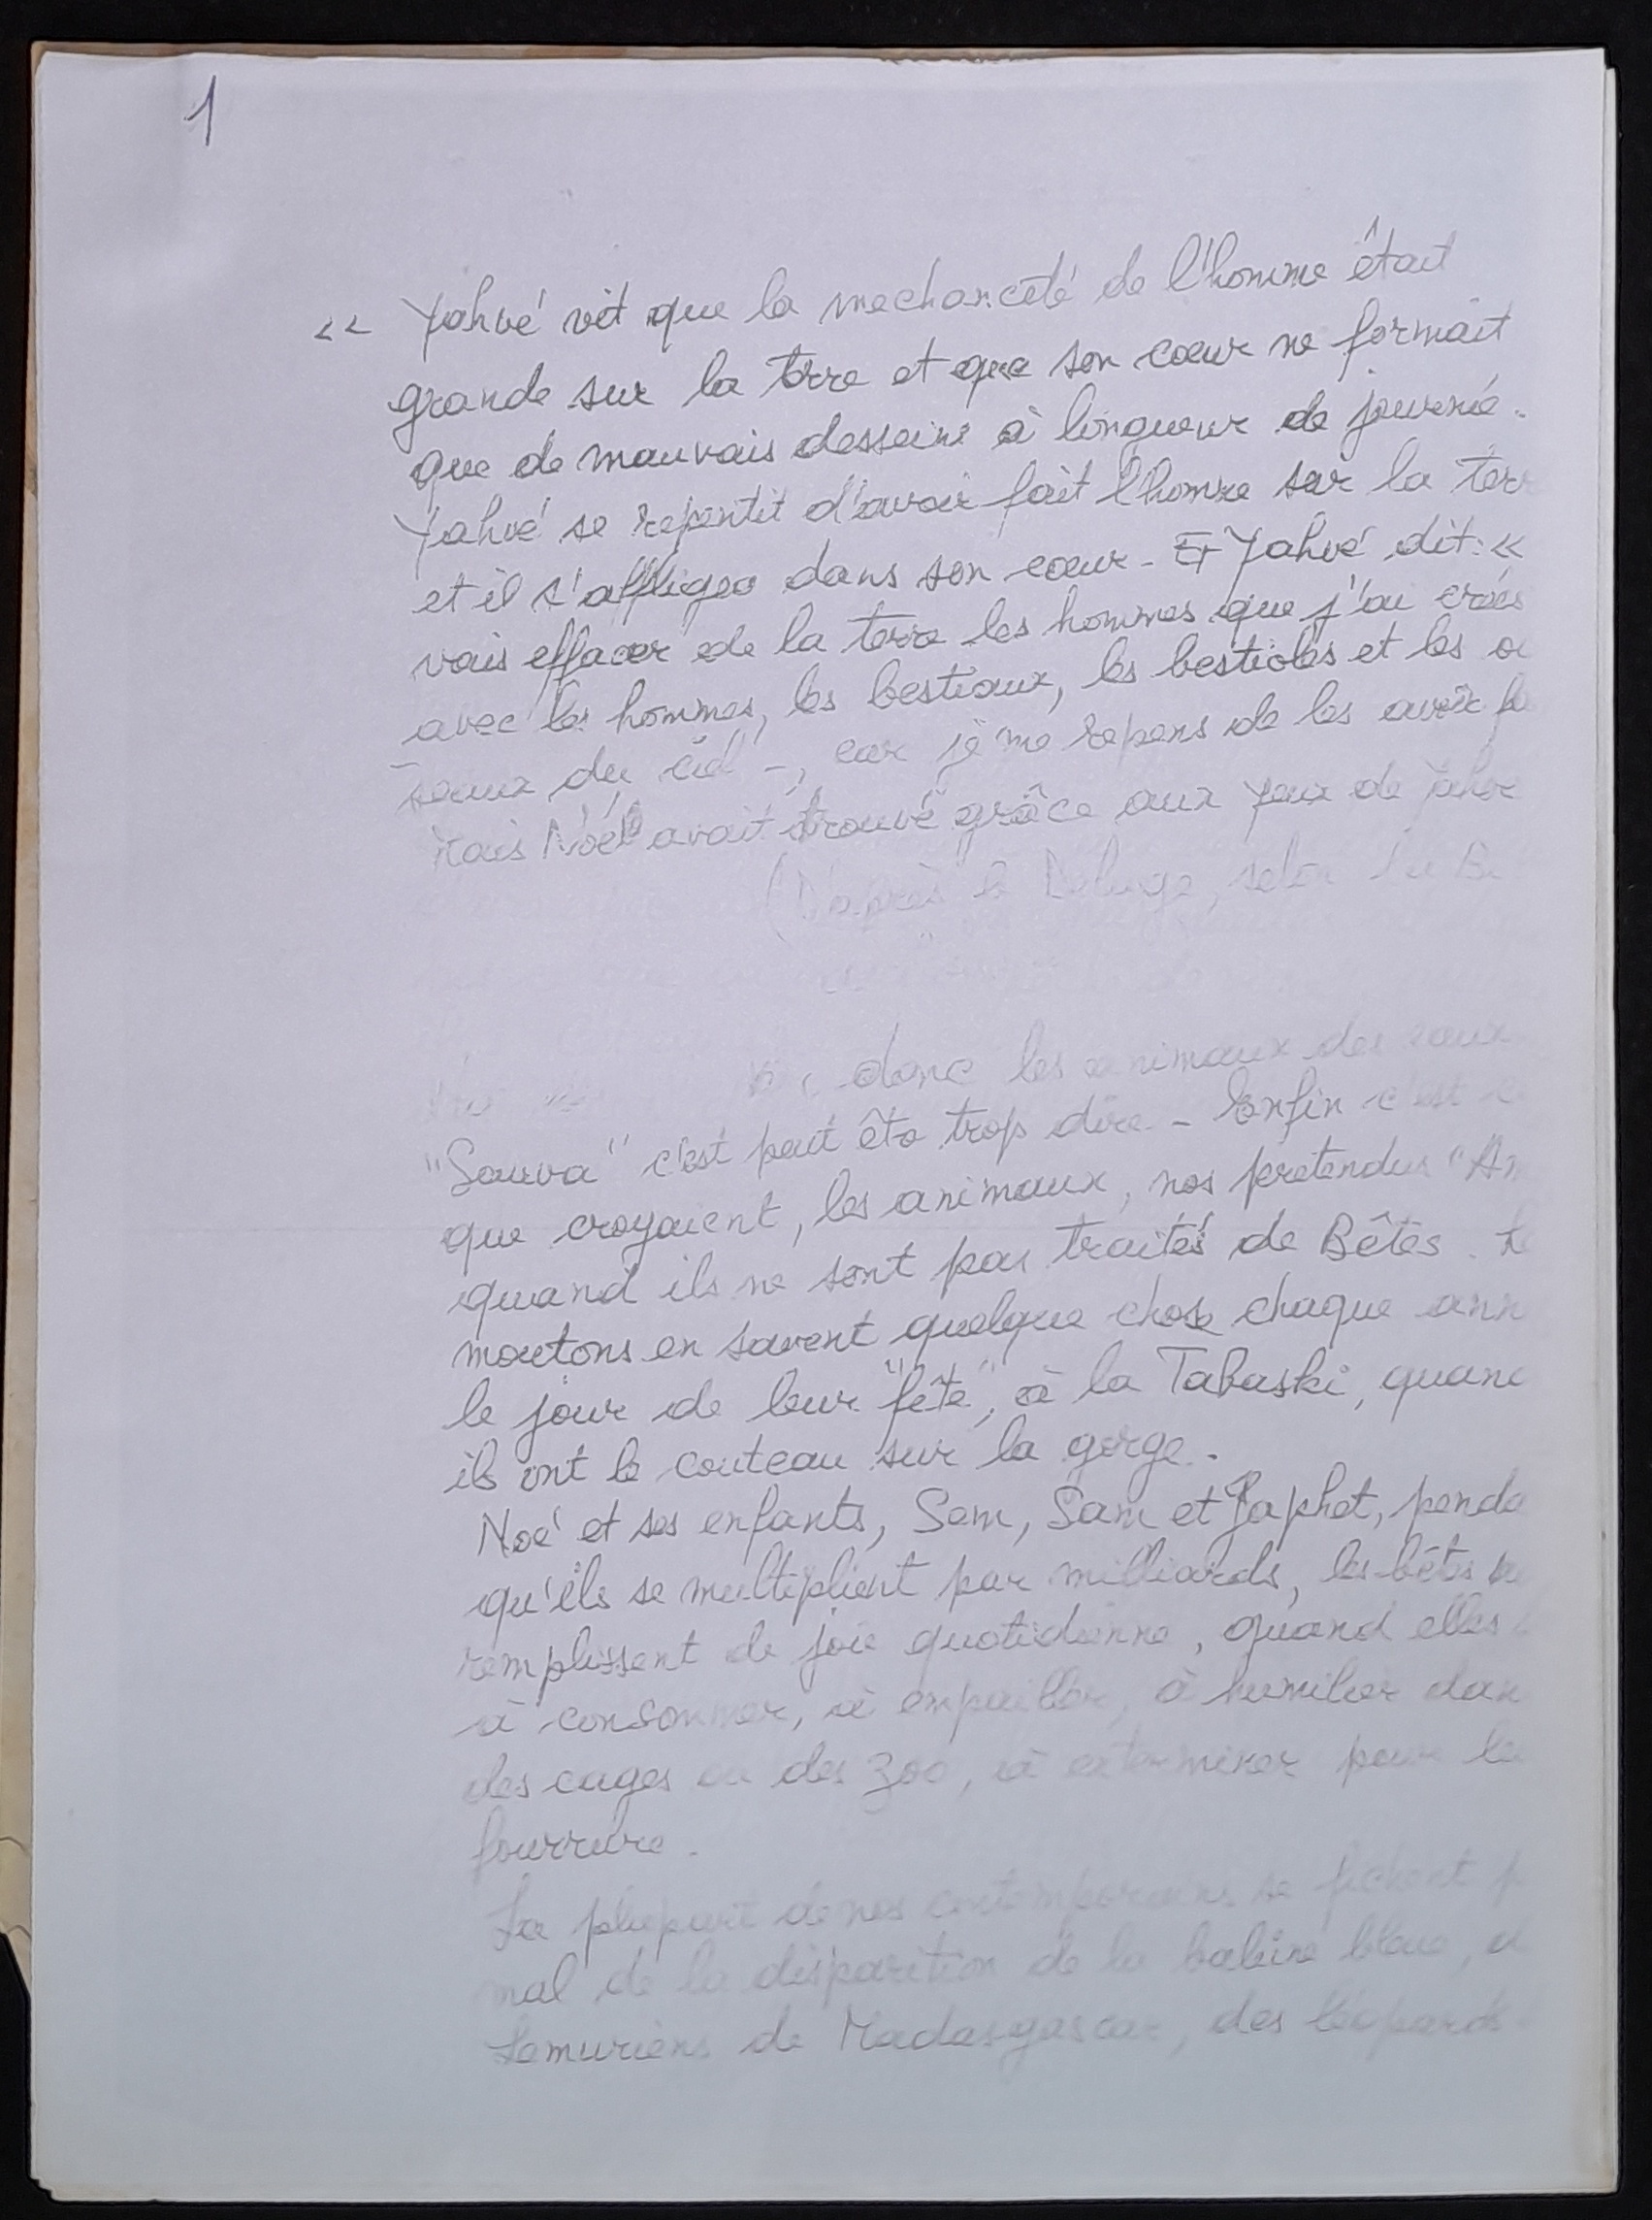 1
« Yahvé vit que la mechanceté de l'homme était
grande sur la terre et que son cœur ne formait
que de mauvais desseins à longueur de journé.
Yahvé se repentit d'avoir fait l'homme sur la terr
et il s'affligea dans son cœur - Et Yahvé dit : «
vais effacer de la terre les hommes que j'ai créés
avec les hommes, les bestiaux, les bestioles et les oi
seaux du ciel -, car je me repens de les avoir fa
Mais Noé avait trouvé grâce aux yeux de Yahvé
(D'après le Deluge, selon La Bi
donc les animaux des eaux
"Sauva" c'est peut êtê trop dire - Enfin c'est c
que croyaient, les animaux, nos pretendus "Am
quand ils ne sont pas traités de Bêtes. Le
moutons en savent quelque chose chaque ann
le jour de leur "fête", à la Tabaski, quand
ils ont le couteau sur la gorge.
Noé et ses enfants, Sem, Sam et Japhet, penda
qu'ils se multiplient par milliards, les bêtes
remplissent de joie quotidienne, quand elles
à consommer, à empailler, à humilier dan
des cages ou des zoo, à exterminer pour le
fourrure.
La plupart de nos contemporains se fichent p
mal de la disparition de la baleine bleue, d
Lemuriens de Madasgascar, des léopards